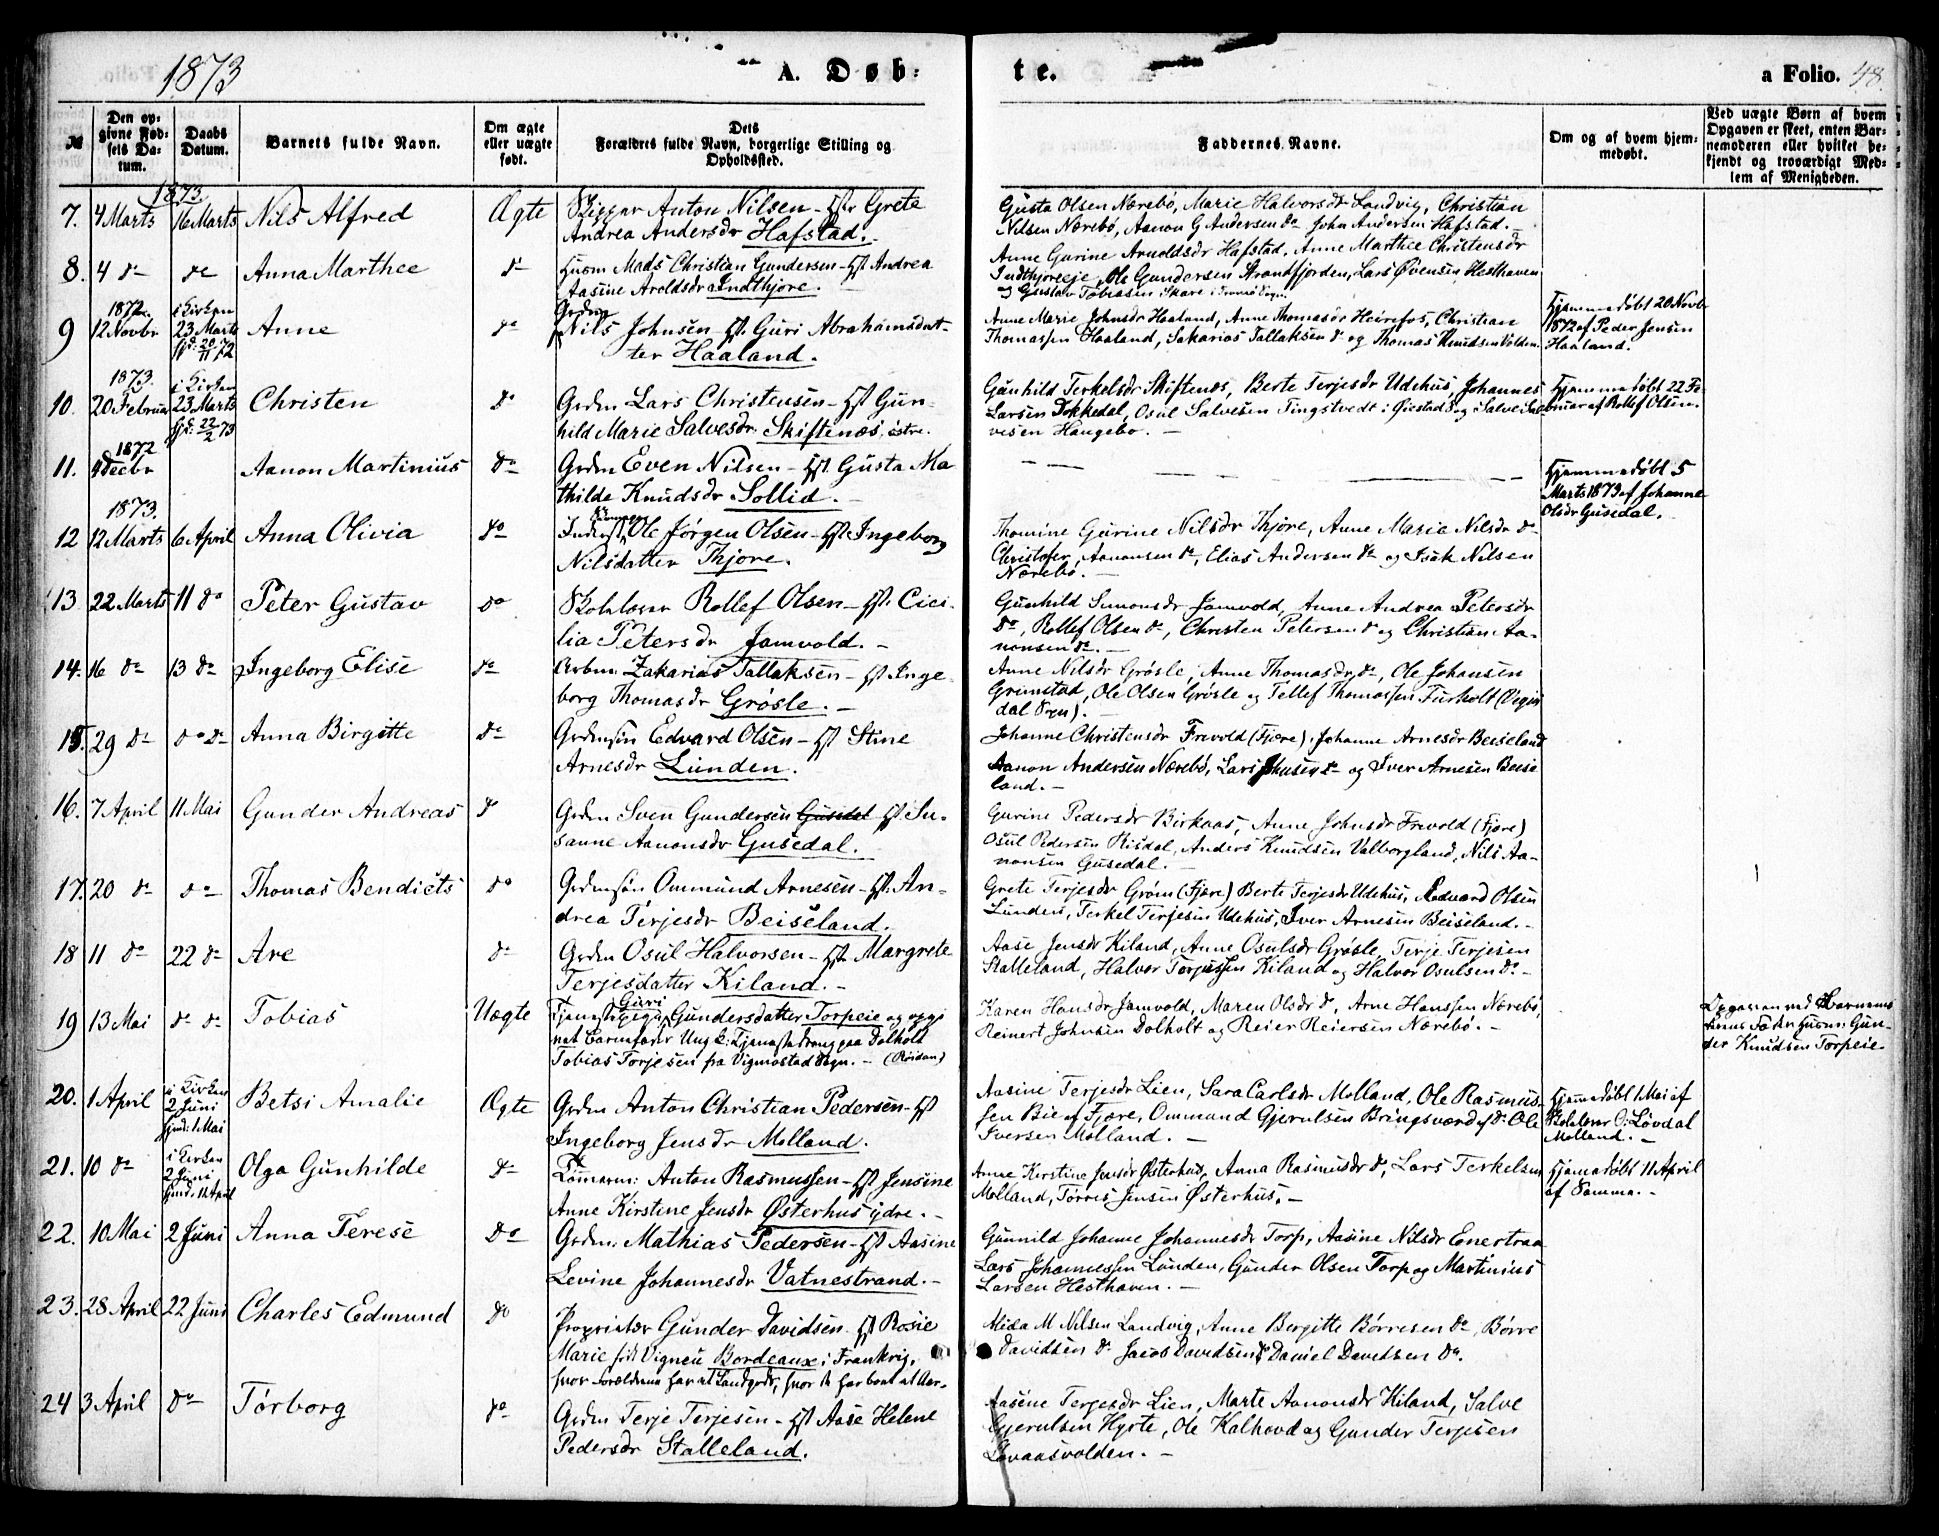 1873
A. Døb:
te.
a Folio. 48.
№
Den op-
givne Fød-
sels Da-
tum.
Daabs
Datum.
Barnets fulde Navn.
Om ægte
eller uægte
født.
Dets
Forældres fulde Navn, borgerlige Stilling og
Opholdssted.
Faddernes Navne.
Om og af hvem hjem-
medøbt.
Ved uægte Børn af hvem
Opgaven er skeet, enten Bar-
nemoderen eller hvilket be-
kjendt og troværdigt Med-
lem af Menigheden.
1873
7. 4 Marts 16 Marts Nils Alfred Ægte Skipper Anton Nilsen - Hst Grete
Andrea Andersdr Hafstad.
Gusta Olsen Nærebø, Marie Halvorsdr Landvig, Christian
Nilsen Nærebø, Aanon G Andersen do John Andersen Hafstad.
8. 4 do do Anna Marthee do Husm Mads Christian Gundersen - Hst Andrea
Aasine Aroldsdr Indthjore.
Anne Gurine Arnoldsdr Hafstad, Anne Marthee Christensdr
Indthjoreeje, Ole Gundersen Strandfjorden, Lars Øvensen Hesthaven
og Gustav Tobiasen Skare i Tromø Sogn.
9 1872 12 Novbr i Kirken 23 Marts hjd: 20/11 72 Anne do Grdm
Nils Johnsen - Hst Guri Abrahamsdat-
ter Haaland.
Anne Marie Johnsdr Haaland, Anne Thomasdr Heirefos, Christian
Thomassen Haaland, Sakarias Tallaksen do og Thomas Knudsen Volden.
Hjemmedøbt 20 Novbr
1872 af Peder Jensen
Haaland.
10. 1873. 20 Februar i Kirken 23 Marts hjd: 22/2 73 Christen do Grdm Lars Christensen - Hst Gun-
hild Marie Salvesdr Skiftenæs østre.
Gunhild Terkelsdr Skiftenæs, Berte Terjesdr Udehus, Johannes
Larsen Dokkedal, Osul Salvesen Tingstvedt i Øiestad S og Salve Sal-
vesen Haugebo.
Hjemmedøbt 22 Fe-
bruar af Rollef Olsen.
11. 1872 4 Decbr Aanon Martinius do Grdm Even Nilsen - Hst Gusta Ma
thilde Knudsdr Sollid.
Hjemmedøbt 5
Marts 1873 af Johanne
Olsdr Gusedal.
12 1873. 12 Marts 6 April Anna Olivia do Inderst Ole Jørgen Olsen - Hst Ingeborg
Nilsdatter Thjore.
Thomine Gurine Nilsdr Thjore, Anne Marie Nilsdr do
Christofer Aanonsen do, Elias Andersen do og Isak Nilsen
Nærebø.
13 22 Marts 11 do Peter Gustav do Skolelærer Rollef Olsen - Hst. Cici-
lia Petersdr Jamvold.
Gunhild Simonsdr Jamvold, Anne Andrea Petersdr
do, Rollef Olsen do, Christen Petersen do og Christian Aa-
nonsen do.
14. 16 do 13 do Ingeborg Elise do Arbm. Zakarias Tallaksen - Hst Inge-
borg Thomasdr Grøsle.
Anne Nilsdr Grøsle, Anne Thomasdr do, Ole Johansen
Grimstad, Ole Olsen Grøsle og Tellef Thomassen Furholt (Vegus
dal Sogn).
15. 29 do do do Anna Birgitte do Grdmsøn Edvard Olsen - Hst Stine
Arnesdr Lunden.
Johanne Christensdr Frevold (Fjære), Johanne Arnesdr Beiseland
Aanon Andersen Nærebø, Lars do og Iver Arnesen Beise
land.
16. 7 April 11 Mai Gunder Andreas do Grdm Sven Gundersen Gusedal Hst Su-
sanne Aanonsdr Gusedal.
Gurine Pedersdr Birkaas, Anne Johnsdr Frevold (Fjære)
Osul Pedersen Risdal, Anders Knudsen Valborgland, Nils Aa-
nonsen Gusedal.
17. 20 do do Thomas Bendicts do Grdmsøn Ommund Arnesen - Hst. An-
drea Terjesdr Beiseland.
Grete Terjesdr Grøm (Fjære) Berte Terjesdr Udehus, Edvard Olsen
Lunden, Terkel Terjesen Udehus, Iver Arnesen Beiseland.
18 11 do 22 do Are do Grdm Osul Halvorsen - Hst Margrete
Terjesdatter Kiland.
Aase Jensdr Kiland, Anne Osulsdr Grøsle, Terje Terjesen
Stalleland, Halvor Terjessen Kiland og Halvor Osulsen do
19 13 Mai do do Tobias Uægte Tjenestepige Guri Gundersdatter Torpeie og opgi
vet Barnefader Ung k: Tjenestedreng paa Dolholt
Tobias Torjesen fra Vigmostad Sogn.
Karen Hansdr Jamvold, Maren Olsdr do, Arne Hanssen Nærebø,
Reinert Johnsen Dolholt og Reier Reiersen Nærebø.
Opgaven ved Barnemo
derens Fader Husm: Gun-
der Knudsen Torpeie
20. 1 April i Kirken 2 Juni hjmd: 1 Mai Betsi Amalie Ægte Grdm Anton Christian Pedersen - Hst
Ingeborg Jensdr Molland.
Aasine Terjesdr Lien, Sara Carlsdr Molland, Ole Rasmus-
sen Bie af Fjære, Ommund Gjerulsen Bringsværd af do Ole
Iversen Molland.
Hjemmedøbt 1 Mai af
Skolelærer O: Løvdal
Molland.
21. 10 do i Kirken 2 Juni hjmd. 11 April Olga Gunhilde do Tømmerm: Anton Rasmussen - Hst Jensine
Anne Kirstine Jensdr Østerhus ydre.
Anne Kirstine Jensdr Østerhus, Anna Rasmusdr do, Lars Terkelsen
Molland, Tørres Jensen Østerhus.
Hjemmedøbt 11 April
af Samme.
22. 10 Mai 2 Juni Anna Terese do Grdm: Mathias Pedersen - Hst Aasine
Levine Johannesdr Vatnestrand.
Gunnild Johanne Johannesdr Torp, Aasine Nilsdr Enertraa
Lars Johannessen Lunden, Gunder Olsen Torp og Martinius
Larsen Hesthaven.
23. 28 April 22 Juni Charles Edmund do Proprietær Gunder Davidsen - Hst Rosie
Marie født Vigneu Bordeaux i Frankrig,
hvor Forældrene har et Landgods,
Alida M Nilsen Landvig, Anne Bergitte Børresen do, Børre
Davidsen do Jacob Davidsen do Daniel Davidsen do.
24 3 April do Tørborg do Grdm Terje Terjesen - Hst Aase Helene
Pedersdr Stalleland.
Aasine Terjesdr Lien, Marte Aanonsdr Kiland, Salve
Gjerulsen Hyrte, Ole Kalhovd og Gunder Terjesen
Løvaasvolden.